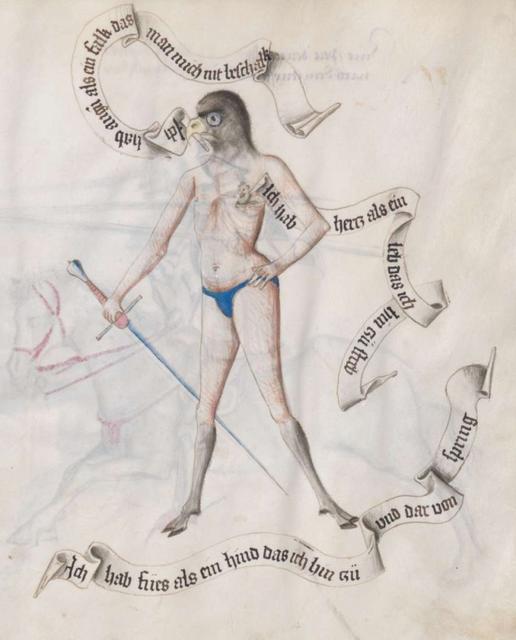 Ich hab augn als ein falk das man mich nit beschalk
Ich hab hertz als ein leb das ich hin zü streb
Ich hab fües als ein hind das ich hin zü vnd dar von spring